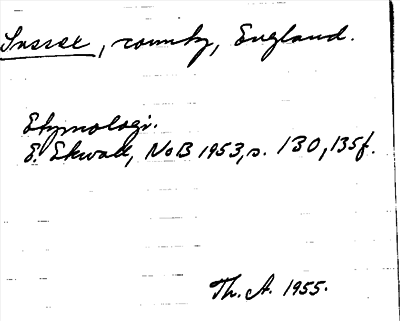 Sussex, county, England.
Etymologi.
E. Ekwall, NoB 1953, s. 130, 135f.
Th. A. 1955.